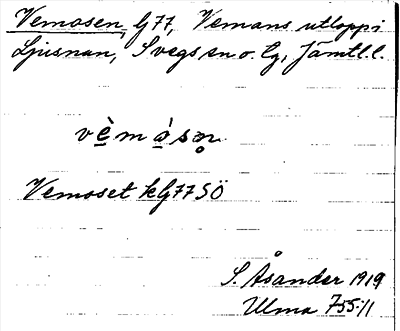 Vemosen, lJ 77, Vemans utlopp i
Ljusnan, Svegs sn o. lg, Jämtl. l.
vèmåsən
Vemoset k lJ 77 SÖ
S. Åsander 1919
Ulma 755:11